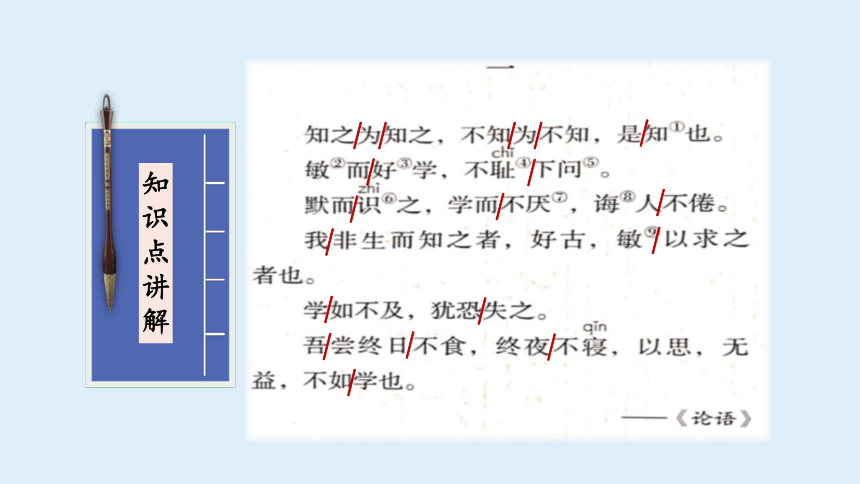 知识点讲解
一
知之/为/知之，不知/为/不知，是/知①也。
敏②而/好③学，不耻④/下问⑤。
chǐ
默而/识⑥之，学而/不厌⑦，诲⑧人/不倦。
zhì
我/非生而知之者，好古，敏⑨/以求之
者也。
学/如不及，犹恐/失之。
吾/尝终日/不食，终夜/不寝，以思，无
qǐn
益，不如/学也。
——《论语》